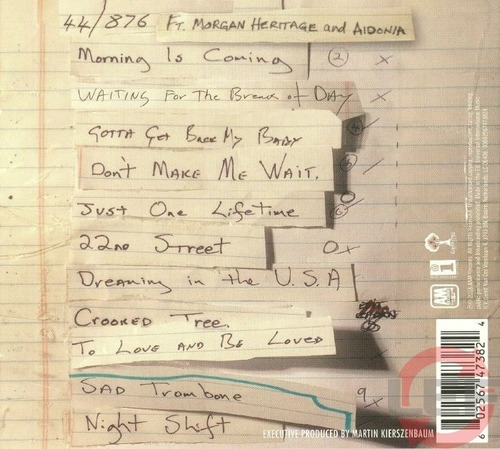 44/876 FT. MORGAN HERITAGE and AIDONIA
Morning Is Coming
WAITING For The Break of DAY
GOTTA Get Back My BABY
DON'T MAKE ME WAIT.
Just One Lifetime
22nd Street
Dreaming in the U.S.A
CROOKED Tree.
To Love AND Be Loved
SAD Trombone
Night Shift
EXECUTIVE PRODUCED BY MARTIN KIERSZENBAUM
6 02567 47382 4